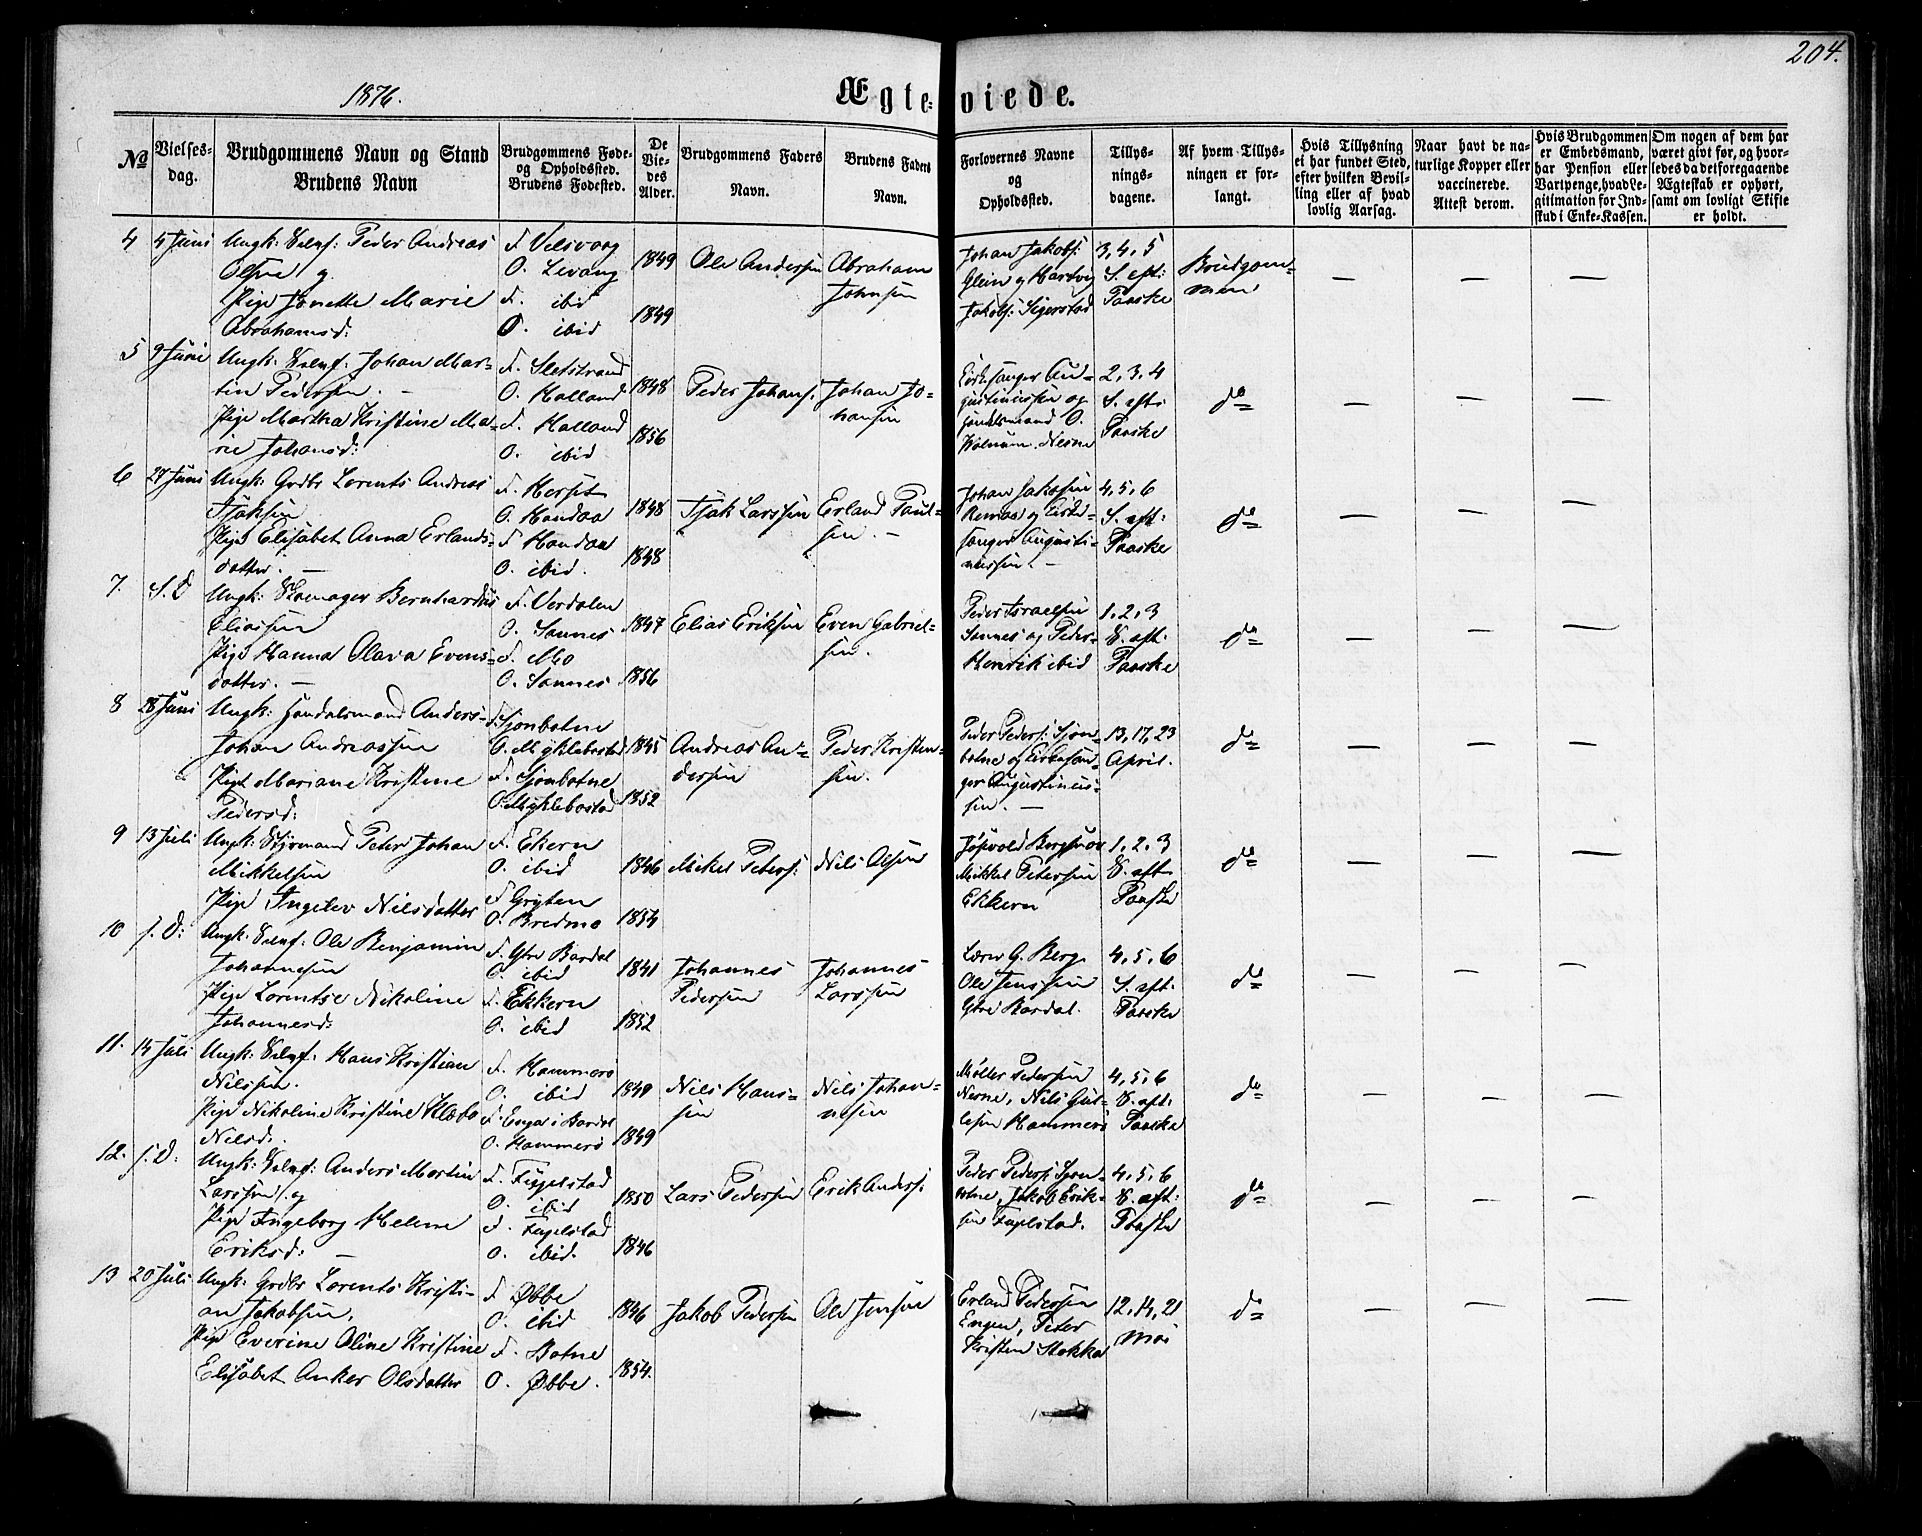 204.
1876.
Ægteviede.
No
Vielses-
dag.
Brudgommens Navn og Stand
Brudens Navn
Brudgommens Føde-
og Opholdssted.
Brudens Fødested.
De
Vie-
des
Alder.
Brudgommens Faders
Navn.
Brudens Faders
Navn.
Forlovernes Navne
og
Opholdssted.
Tillys-
nings-
dagene.
Af hvem Tillys-
ningen er for-
langt.
Hvis Tillysning
ei har fundet Sted,
efter hvilken Bevil-
ling eller af hvad
lovlig Aarsag.
Naar havt de na-
turlige Kopper eller
vaccinerede.
Attest derom.
Hvis Brudgommen
er Embedsmand,
har Pension eller
Vartpenge, hvad Le-
gitimation for Ind-
skud i Enke-Kassen.
Om nogen af dem har
været givt før, og hvor-
ledes da det foregaaende
Ægteskab er ophørt,
samt om lovligt Skifte
er holdt.
4 5 Juni Ungk: Selvf: Peder Andreas
Olsen g.
Pige Jonette Marie
Abrahamsd:
F. Velsvaag
O. Levang
F. ibid
O. ibid
1849
1849
Ole Andersen
Abraham
Johnsen
Johan Jakobs:
Glein og Hartvig
Jakobs: Sigerstad
3, 4, 5
S. eft:
Paaske
Brudgom-
men
5 9 Juni Ungk: Selvf: Johan Mar-
tin Pedersen. -
Pige Martha Kristine Ma-
rie Johansd:
F. Sletstrand
O. Halland
F. Halland
O. ibid
1848
1856
Peder Johans:
Johan Jo-
hansen
Kirkesanger Au-
gustinussen og
Handelsmand O.
Nesne
2, 3, 4
S. eft:
Paaske
do
6 27 Juni Ungk: Grdbr Lorents Andreas
Isaksen
Pige Elisabet Anna Erlands-
datter. -
F. Herset
O. Handaa
F. Handaa
O. ibid.
1848
1848
Isak Larssen
Erland Paul-
sen. -
Johan Jakobsen
Remaa og Kirke-
sanger Augusti-
nussen. -
4, 5, 6
S. eft:
Paaske
do
7. S. D Ungk: Skomager Bernhardus
Eliassen
Pige Hanna Olava Evens-
datter. -
F. Verdalen
O. Sannes
F. Mo
O. Sannes
1847
1856
Elias Eriksen
Even Gabriel-
sen.
Peder Israelsen
Sannes og Peder
Henrik ibid
1, 2, 3
S. eft:
Paaske
do
8 28 Juni Ungk: Handelsmand Anders
Johan Andreassen
Pige Mariane Kristine
Pedersd:
F. Sjonbotne
O. Myklebostad
F. Sjonbotne
O. Myklebostad
1845
1852
Andreas An-
dersen
Peder Kristen-
sen.
Peder Peders: Sjon-
botne og Kirkesan-
ger Augustinus-
sen. -
13, 17, 23
April.
do
9 13 Juli Ungk: Styrmand Peter Johan
Mikkelsen
Pige Ingelev Nilsdatter
F. Ekern
O. ibid
F. Gryten
O. Bredmo
1846
1854
Mikel Peters:
Nils Olsen
Mikkel Petersen
Ekkern
1, 2, 3
S. eft
Paaske
do
10 S. D: Ungk: Selvf: Ole Benjamin
Johannesen
Pige Lorentse Nikoline
Johannesd:
F. Ytre Bardal
O. ibid
F. Ekkern
O. ibid
1841
1852
Johannes
Pedersen
Johannes
Larssen
Lærer G. Berg
Ole Jenssen
Ytre Bardal.
4, 5, 6
S. eft:
Paaske
do
11. 14 Juli Ungk: Selvf: Hans Kristian
Nilssen.
Pige Nikoline Kristine Klæbo
Nilsd:
F. Hammerø
O. ibid
F. Enga i Bardal
O. Hammerø
1849
Nils Hans-
sen
Nils Johan-
nsen
Møller Pedersen
Nesne, Nils
Hammerø
4, 5, 6
S. eft:
Paaske
do
12. S. D: Ungk: Selvf: Anders Martin
Larssen og
Pige Ingeborg Helene
Eriksd: -
F. Fugelstad
O. ibid
F. Fugelstad
O. ibid.
1850
1846
Lars Pedersen
Erik Anders:
Peder Peders: Sjon-
botne, Jakob Erik-
sen Fugelstad.
4, 5, 6
S. eft:
Paaske
do
13 20 Juli Ungk: Grdbr Lorents Kristi-
an Jakobsen,
Pige Everine Oline Kristine
Elisabet Anker Olsdatter
F. Øbbe
O. ibid
F. Botne
O. Øbbe.
1846
1854.
Jakob Pedersen
Ole Jensen
Erland Pedersen
Engen, Peter
Kristen Stokka
12, 14, 21
Mai
do